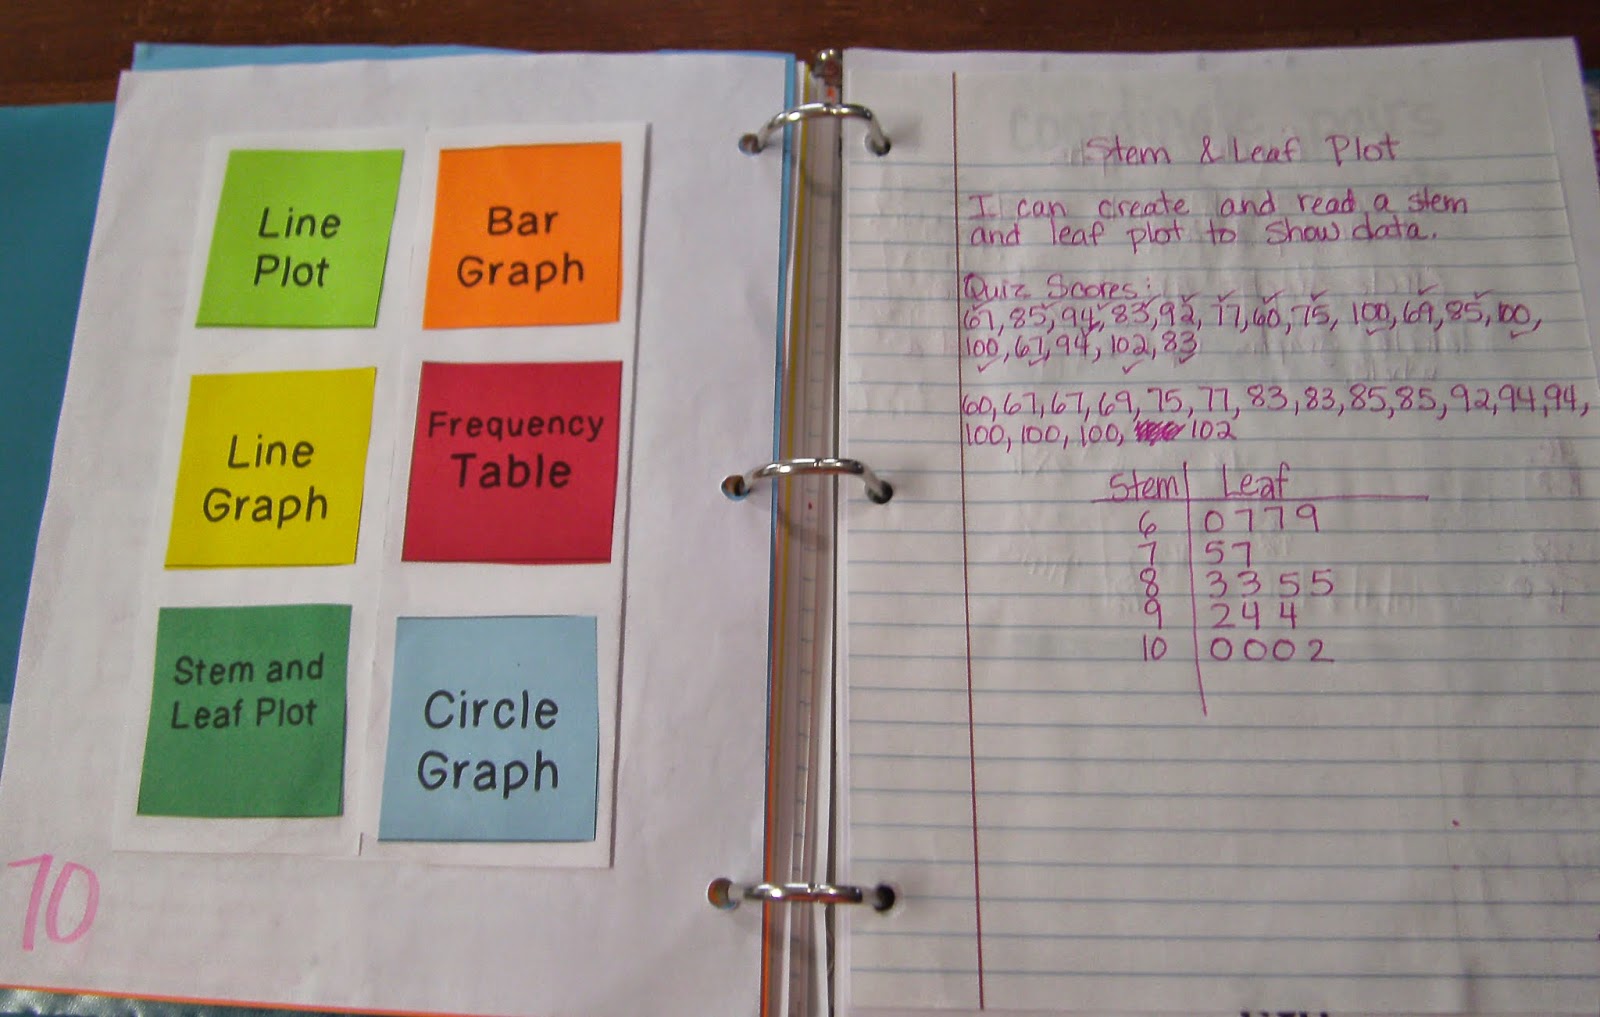 Line
Plot
Bar
Graph
Line
Graph
Frequency
Table
Stem and
Leaf Plot
Circle
Graph
70
Stem & Leaf Plot
I can create and read a stem
and leaf plot to show data.
Quiz Scores:
67, 85, 94, 83, 92, 77, 60, 75, 100, 69, 85, 100,
100, 67, 94, 102, 83
60, 67, 67, 69, 75, 77, 83, 83, 85, 85, 92, 94, 94,
100, 100, 100, 102
Stem | Leaf
6 | 0 7 7 9
7 | 5 7
8 | 3 3 5 5
9 | 2 4 4
10 | 0 0 0 2